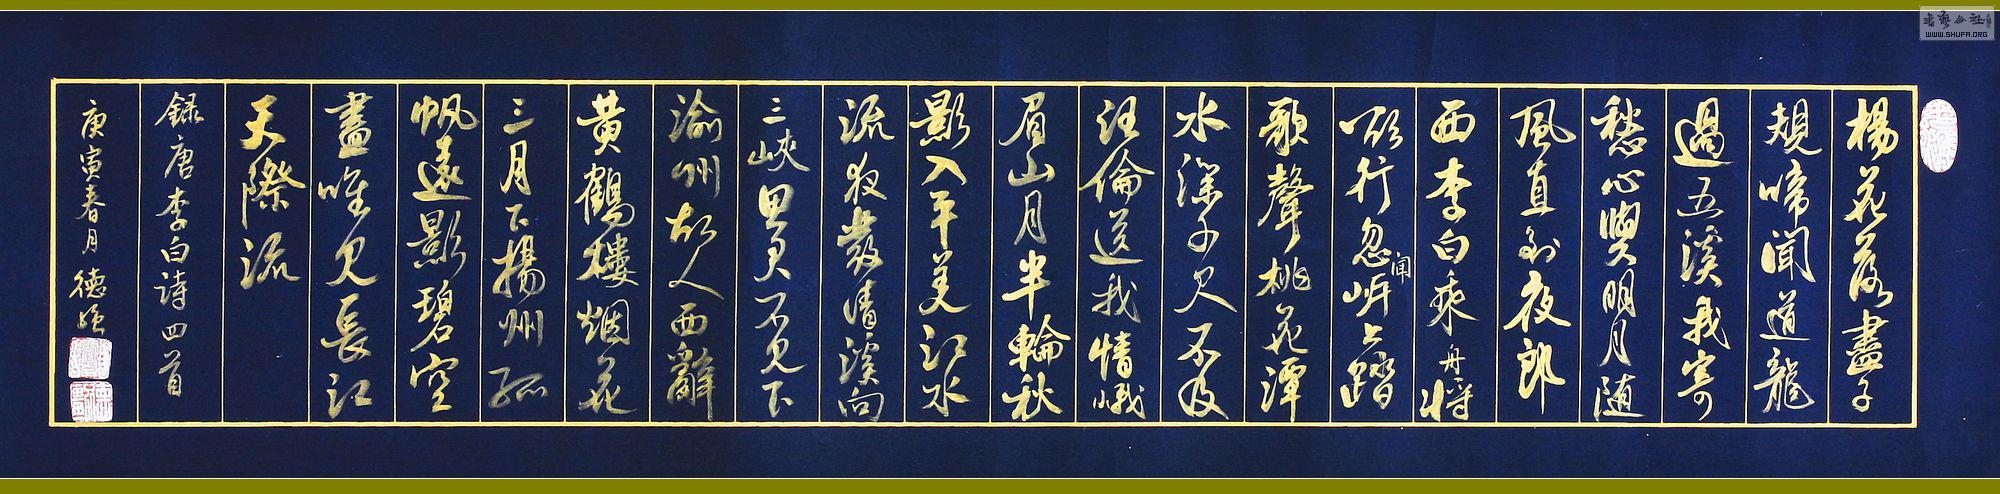 楊花落盡子
規啼聞道龍
過五溪我寄
愁心與明月随
風直到夜郎
西李白乘舟將
欲行忽闻岸上踏
歌聲桃花潭
水深千尺不及
汪倫送我情峨
眉山月半輪秋
影入平羌江水
流夜發清溪向
三峽思君不見下
渝州故人西辭
黄鶴樓烟花
三月下揚州孤
帆遠影碧空
盡唯見長江
天際流
録唐李白詩四首
庚寅春月德强
WWW.SHUFA.ORG